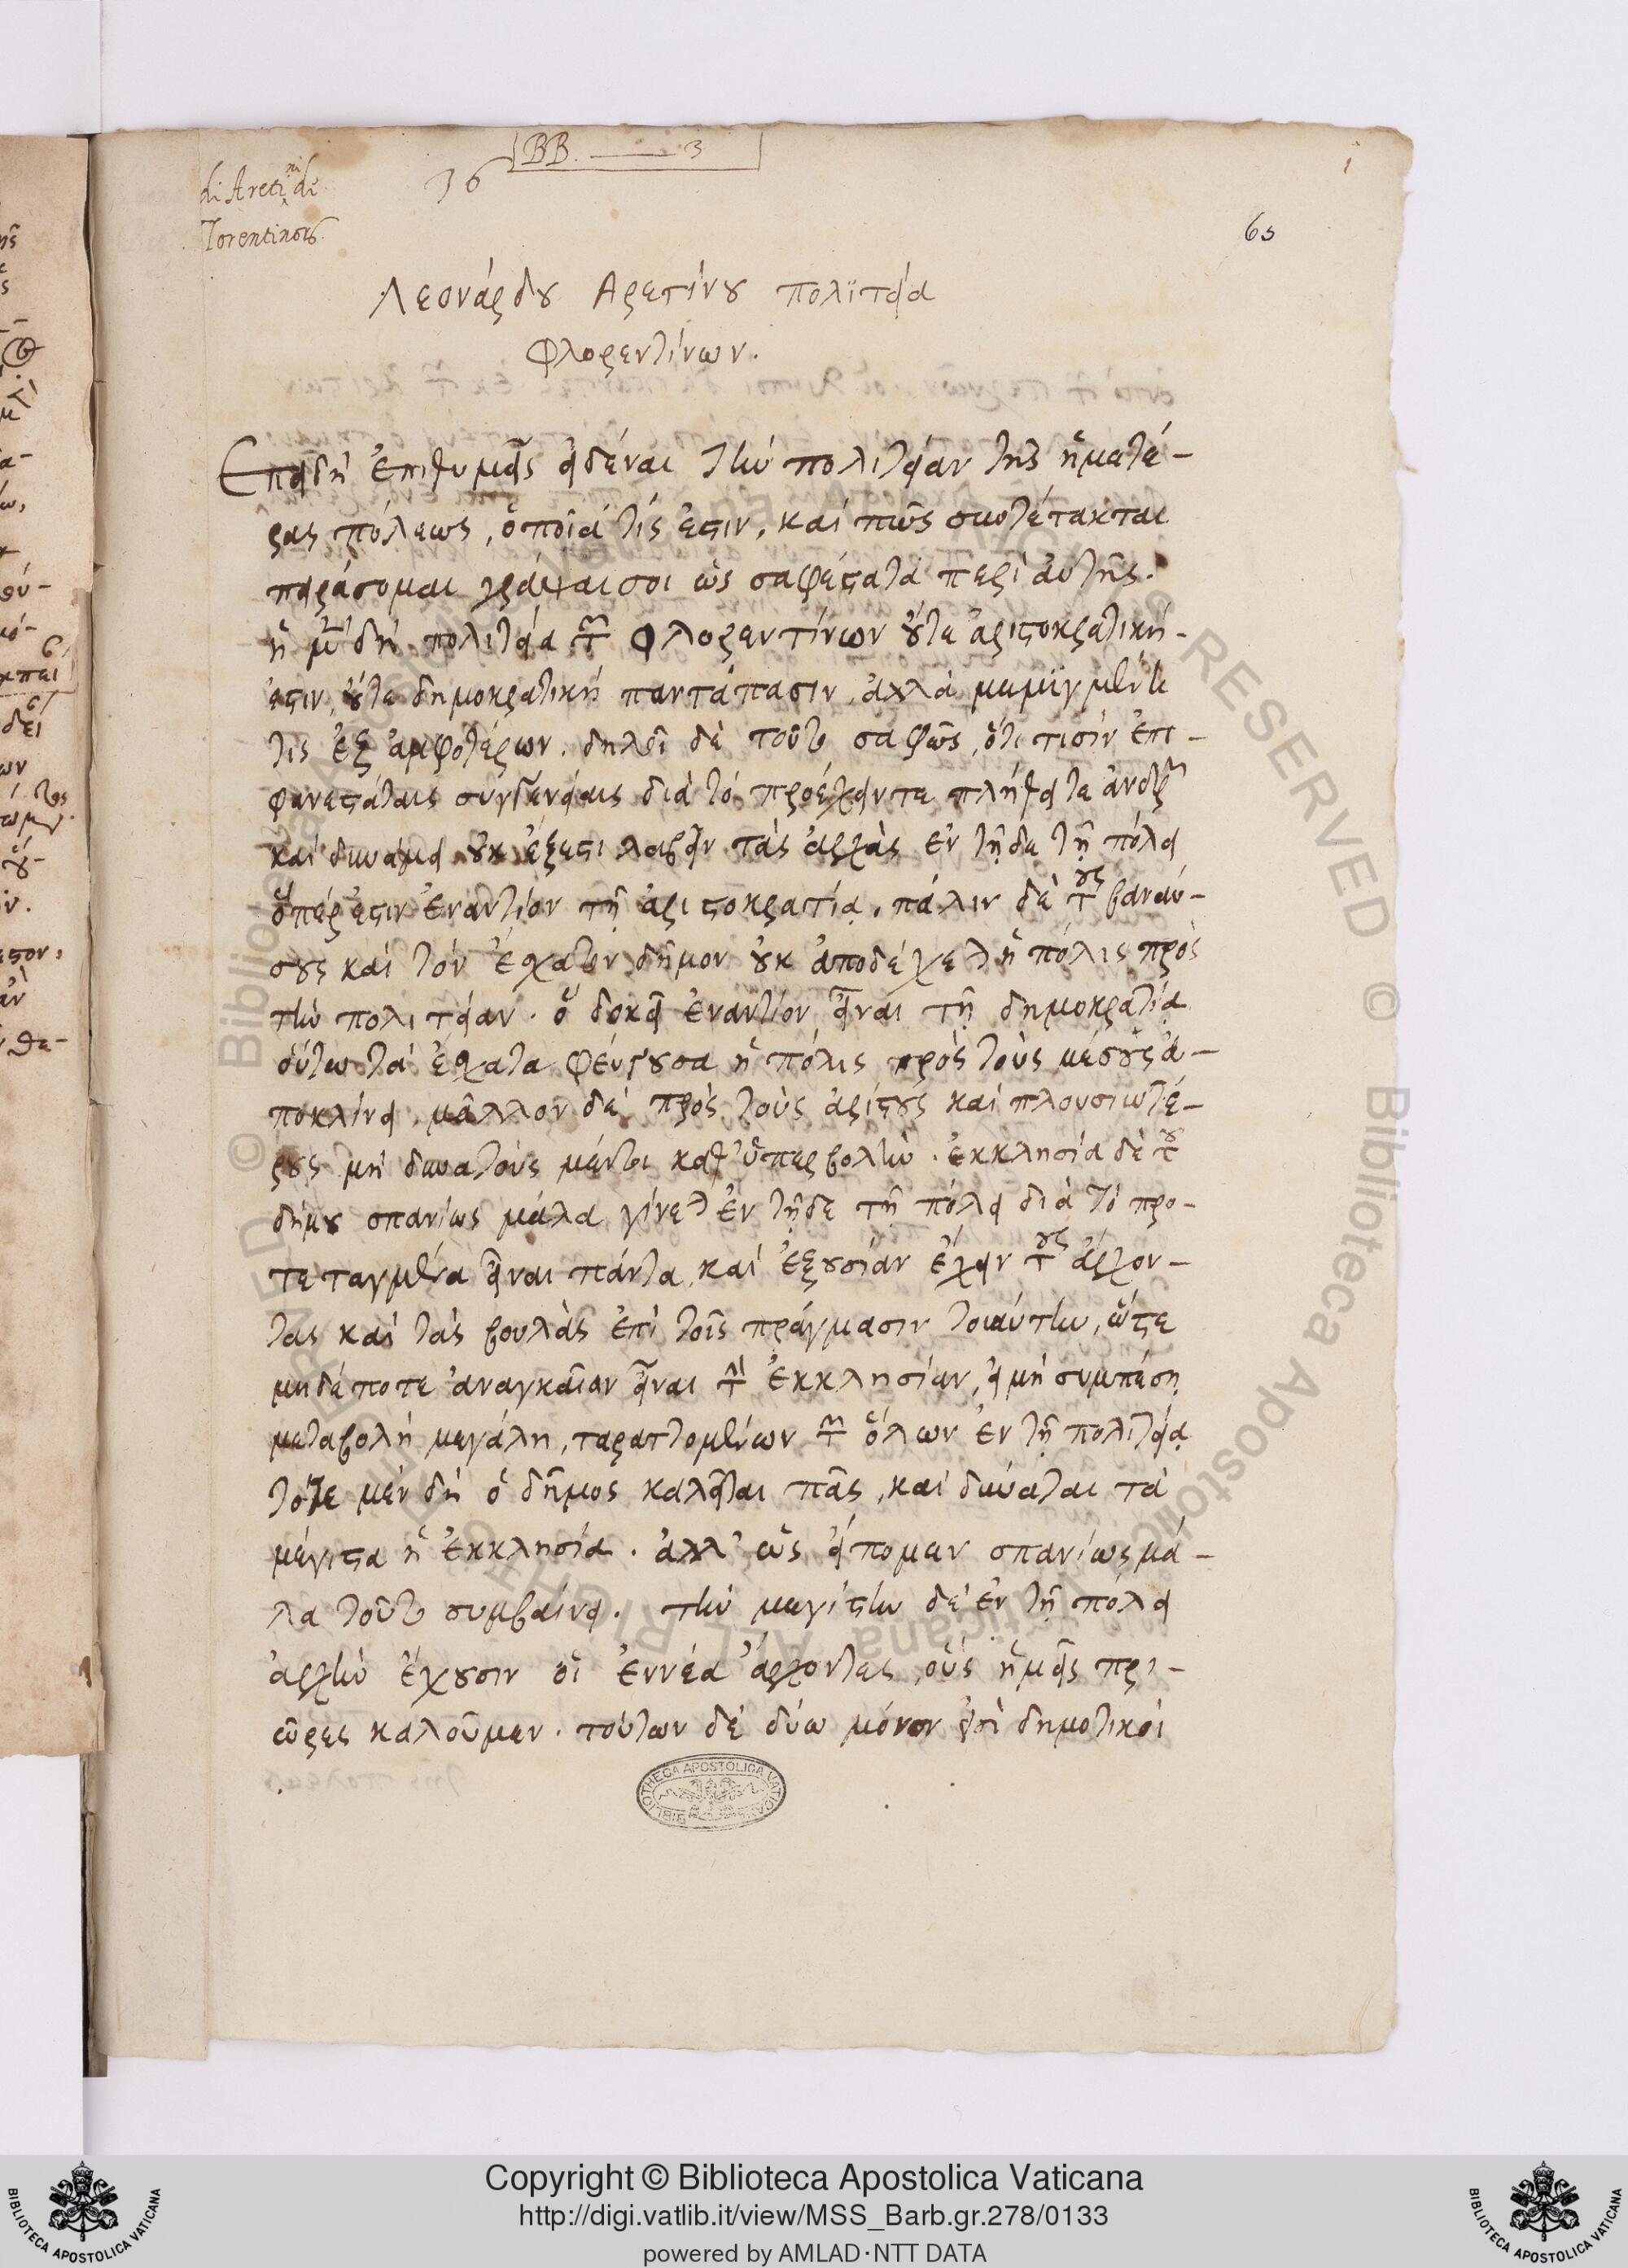 BB. 3
36
1
di Aretini de
Florentinors
65
Λεονάρδου Αρετίνου πολϊτεία
Φλορεντίνων.
Επειδὴ ἐπιθυμεῖς εἰδέναι τὴν πολιτείαν τῆς ἡμετέ-
ρας πόλεως, ὁποῖά τις ἐστιν, καὶ πῶς συντέτακται
πειράσομαι γράψαι σοι ὡς σαφέστατα περὶ αὐτῆς.
ἡ μὲν δὴ πολιτεία τῶν Φλορεντίνων οὔτε ἀριστοκρατική
ἐστιν, οὔτε δημοκρατικὴ παντάπασιν, ἀλλὰ μεμιγμένη
τις ἐξ ἀμφοτέρων. δηλοῖ δὲ τοῦτο σαφῶς, ὅτι τισὶν ἐπι-
φανεστάταις συγγενείαις διὰ τὸ προέχειν τε πλήθει τε ἀνδρῶν
καὶ δυνάμει οὐκ ἔξεστι λαβεῖν τὰς ἀρχὰς ἐν τῇδε τῇ πόλει
ὅπέρ ἐστιν ἐναντίον τῇ ἀριστοκρατίᾳ. πάλιν δὲ τοὺς βαναύ-
σους καὶ τὸν ἔσχατον δῆμον οὐκ ἀποδέχεται ἡ πόλις πρὸς
τὴν πολιτείαν. ὃ δοκεῖ ἐναντίον εἶναι τῇ δημοκρατίᾳ
οὕτω τὰ ἔσχατα φεύγουσα ἡ πόλις πρὸς τοὺς μέσους ἀ-
ποκλίνει. μᾶλλον δὲ πρὸς τοὺς ἀρίστους καὶ πλουσιωτέ-
ρους μὴ δυνατοὺς μέντοι καθ' ὑπερβολήν. ἐκκλησία δὲ τοῦ
δήμου σπανίως μάλα γίνεται ἐν τῇδε τῇ πόλει διὰ τὸ προ-
τεταγμένα εἶναι πάντα, καὶ ἐξουσίαν ἔχειν τοὺς ἄρχον-
τας καὶ τὰς βουλὰς ἐπὶ τοῖς πράγμασιν τοιαύτην, ὥστε
μηδέποτε ἀναγκαῖαν εἶναι τὴν ἐκκλησίαν, εἰ μὴ συμπέσῃ
μεταβολὴ μεγάλη, ταραττομένων τῶν ὅλων ἐν τῇ πολιτείᾳ
τότε μὲν δὴ ὁ δῆμος καλεῖται πᾶς, καὶ δύναται τὰ
μέγιστα ἡ ἐκκλησία. ἀλλ' ὡς εἴπομεν σπανίως μά-
λα τοῦτο συμβαίνει. τὴν μεγίστην δὲ ἐν τῇ πόλει
ἀρχὴν ἔχουσιν οἱ ἐννέα ἄρχοντες, οὓς ἡμεῖς πρι-
ῶρες καλοῦμεν. τούτων δὲ δύω μόνον εἰσὶ δημοτικοὶ
BIBLIOTHECA APOSTOLICA VATICANA
© Biblioteca Apostolica Vaticana ALL RIGHTS RESERVED
Copyright © Biblioteca Apostolica Vaticana
http://digi.vatlib.it/view/MSS_Barb.gr.278/0133
powered by AMLAD·NTT DATA
BIBLIOTECA APOSTOLICA VATICANA
BIBLIOTECA APOSTOLICA VATICANA